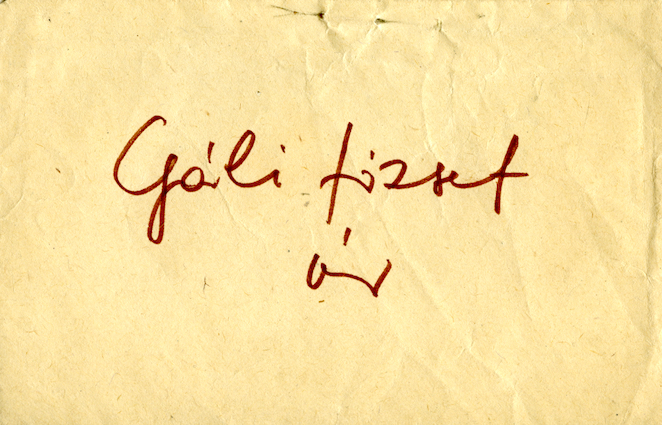 Gáli József
úr